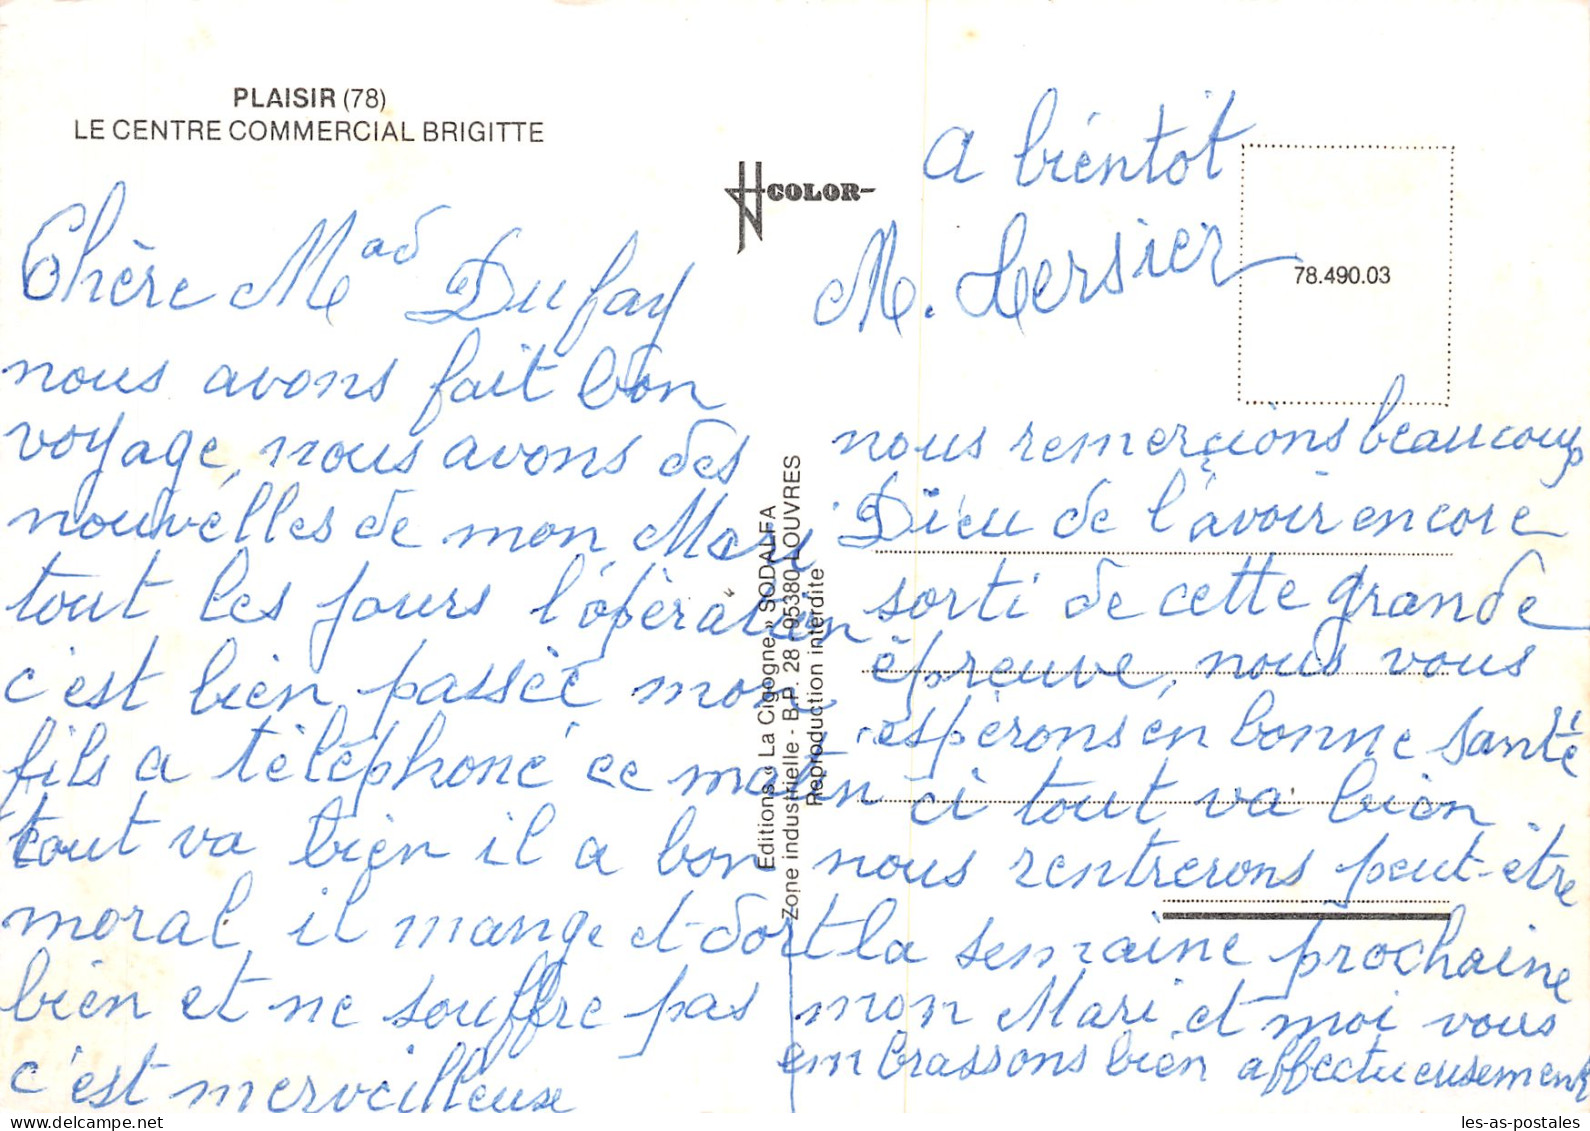 PLAISIR (78)
LE CENTRE COMMERCIAL BRIGITTE
COLOR
Chère Mad Dufay
nous avons fait bon
voyage, nous avons des
nouvélles de mon Mari
tout les jours l'opération
c'est bien passèe mon
fils a tèlèphoné ce matin
tout va bien il a bon
moral, il mange et dort
bien et ne souffre pas
c'est merveilleuse
Editions « La Cigogne » SODALFA
Zone industrielle - B.P. 28 - 95380 LOUVRES
Reproduction interdite
a bientot
M. Lersier
78.490.03
nous remerçions beaucoup
Dieu de l'avoir encore
sorti de cette grande
épreuve, nous vous
espèrons en bonne santé
ici tout va bien
nous rentrerons peut-être
la semaine prochaine
mon Mari et moi vous
embrassons bien affectueusement
les-as-postales